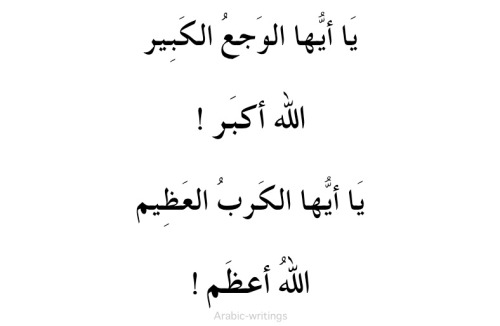 يَا أيُّها الوَجعُ الكَبِير
الله أكبَر !
يَا أيُّها الكَربُ العَظِيم
اللهُ أعظَم !
Arabic-writings